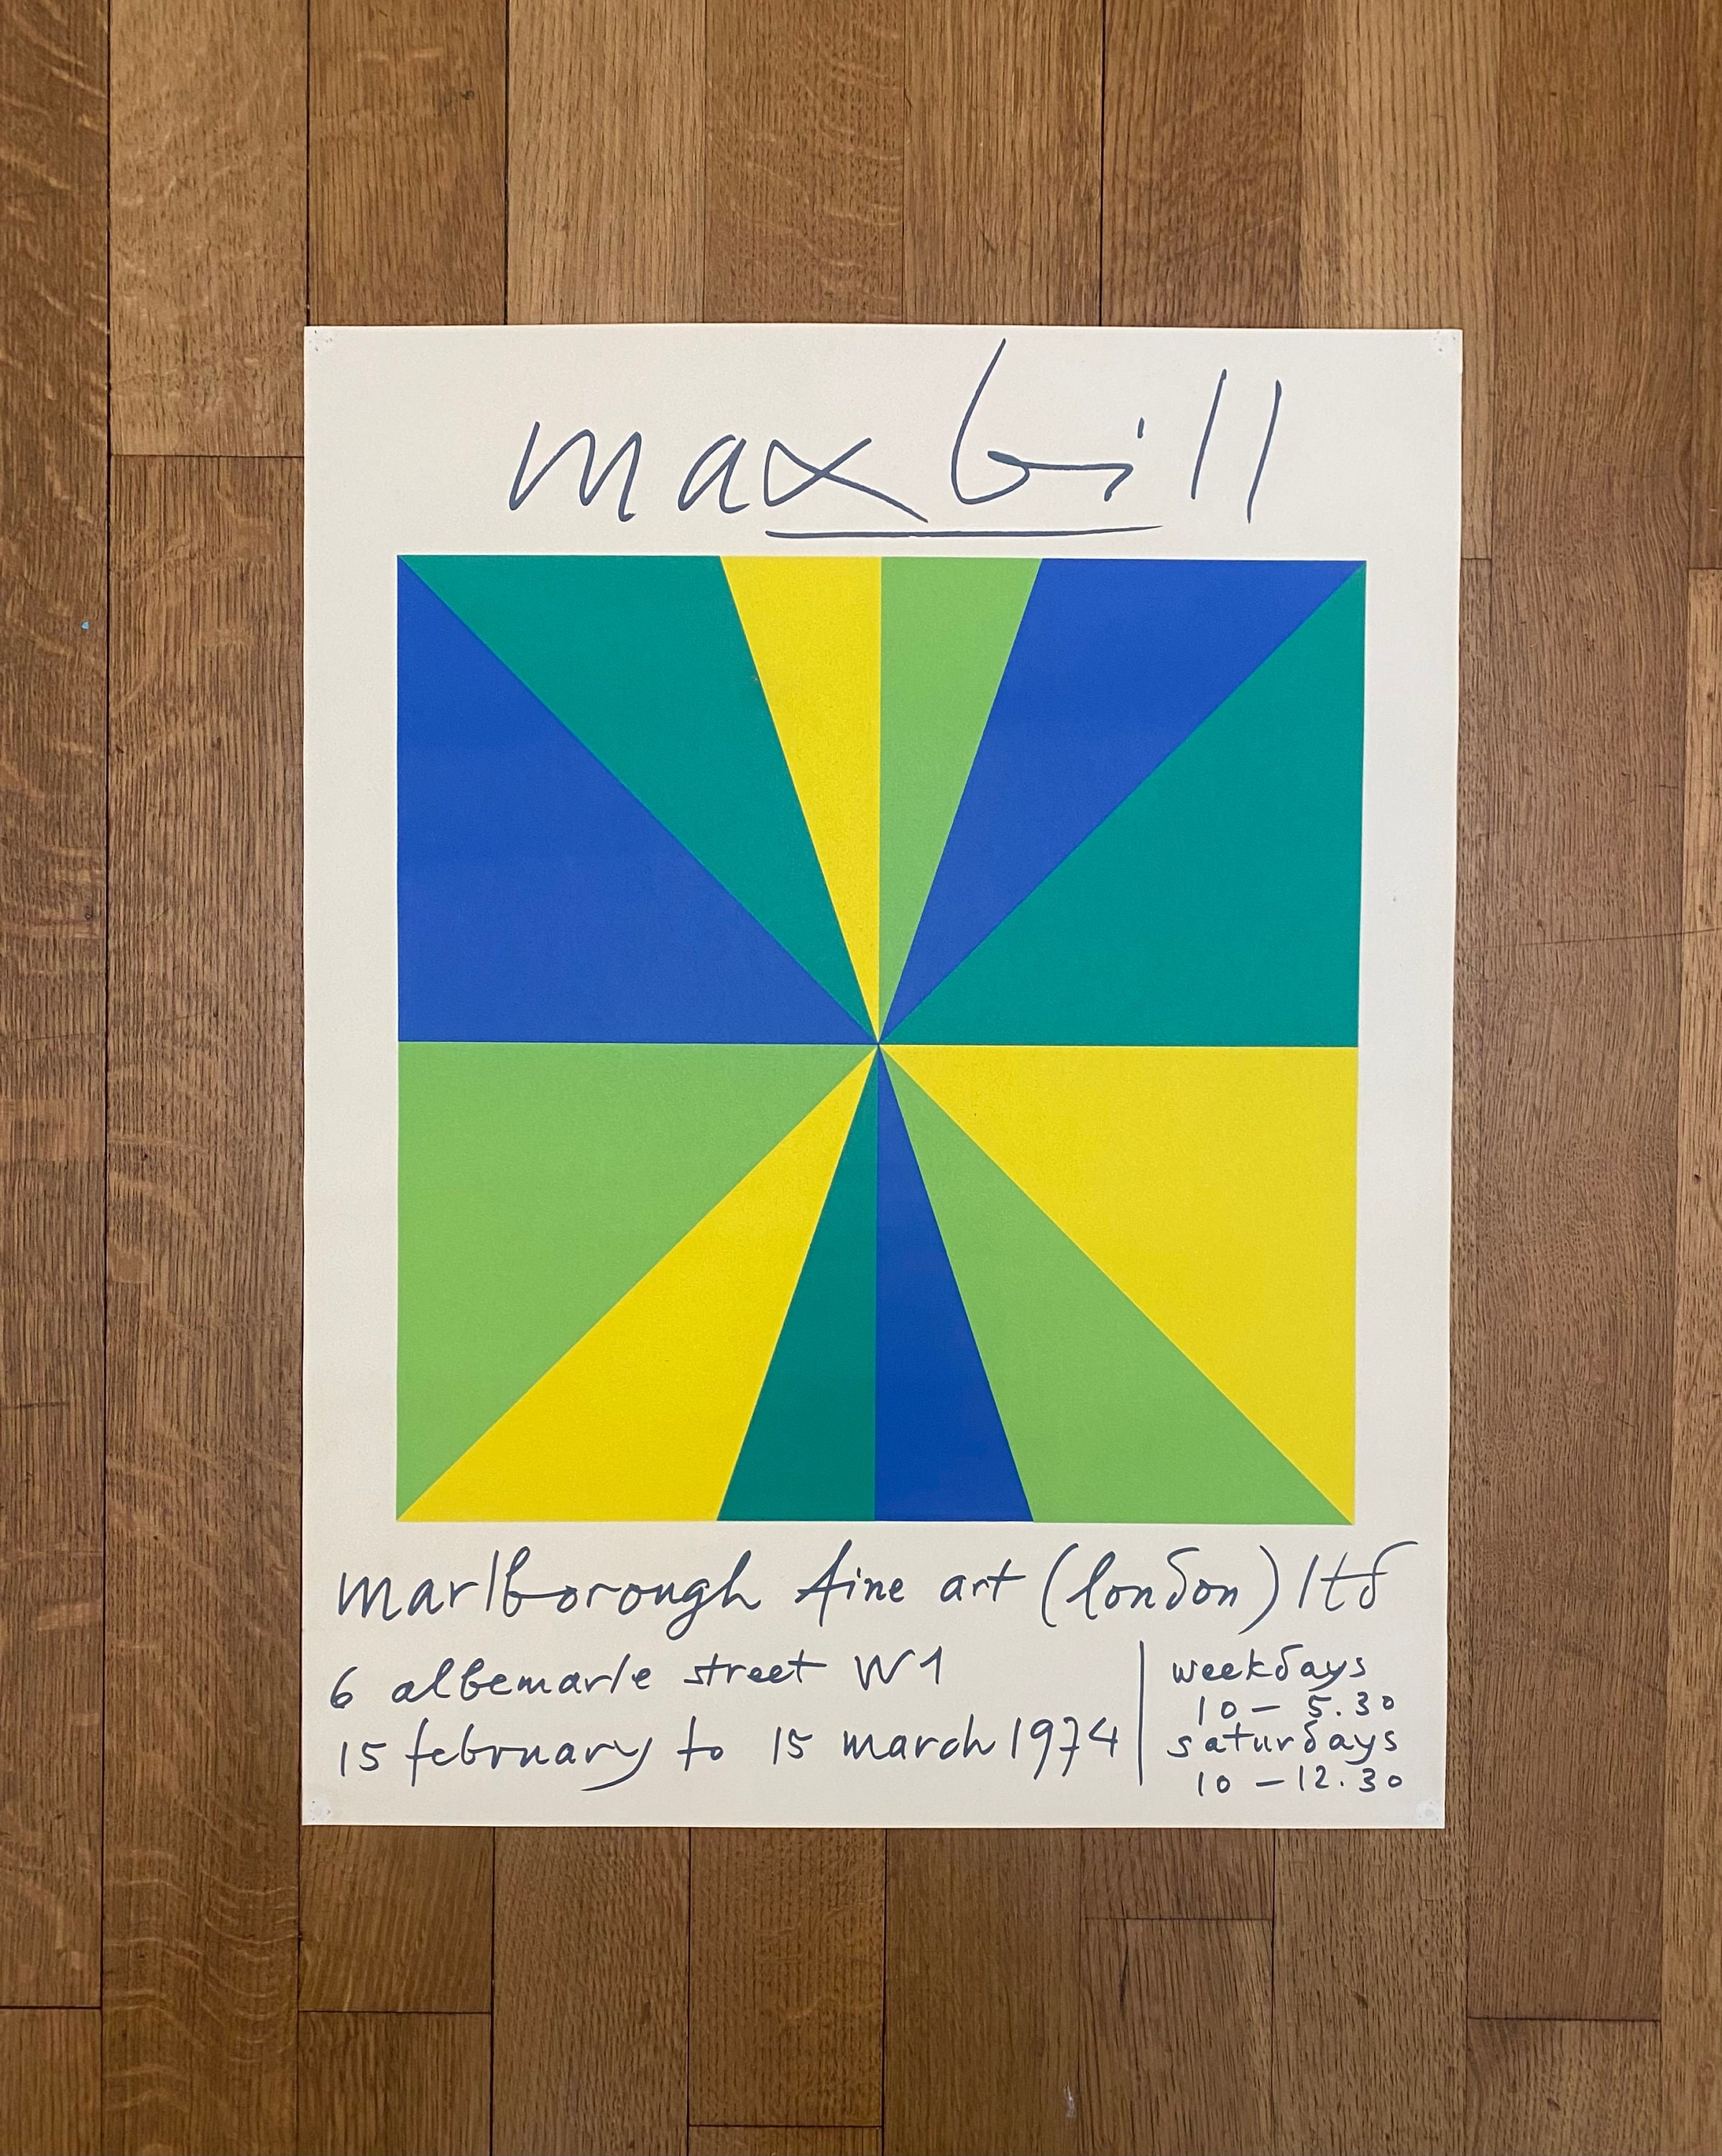 max bill
marlborough fine art (london) ltd
6 albemarle street W1
15 february to 15 march 1974
weekdays
10 – 5.30
saturdays
10 – 12.30